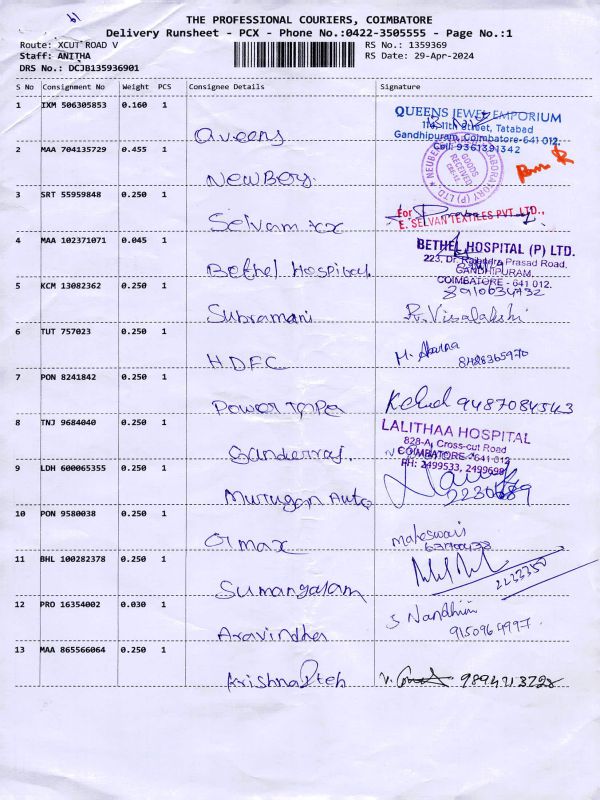 THE PROFESSIONAL COURIERS, COIMBATORE
Delivery Runsheet - PCX - Phone No.:0422-3505555 - Page No.:1
Route: XCUT ROAD V
RS No.: 1359369
Staff: ANITHA
RS Date: 29-Apr-2024
DRS No.: DCJB135936901
S No Consignment No Weight PCS Consignee Details Signature
1 IXM 506305853 0.160 1
Queens
QUEENS JEWEL EMPORIUM
11th Street, Tatabad
Gandhipuram, Coimbatore-641 012.
Cell: 9361391342
2 MAA 704135729 0.455 1
NewBery.
GOODS RECEIVED
LABORATORY (P) LTD
3 SRT 55959848 0.250 1
Selvam xx
For
E. SELVAN TEXTILES PVT. LTD.,
4 MAA 102371071 0.045 1
Bethel Hospital.
BETHEL HOSPITAL (P) LTD.
223, Dr. Rajendra Prasad Road,
GANDHIPURAM,
COIMBATORE - 641 012.
5 KCM 13082362 0.250 1
Subramani
8910634732
R. Visalakshi
6 TUT 757023 0.250 1
HDFC
8428365970
7 PON 8241842 0.250 1
Power
9487084543
8 TNJ 9684040 0.250 1
Sanderraj.
LALITHAA HOSPITAL
828-A, Cross-cut Road
COIMBATORE - 641 012
PH: 2499533, 2499699
9 LDH 600065355 0.250 1
Murugan Auto
2230689
10 PON 9580038 0.250 1
Maheswari
11 BHL 100282378 0.250 1
Sumangalam
2223350
12 PRO 16354002 0.030 1
Aravindha
S Nandhini
9150964997.
13 MAA 865566064 0.250 1
V.
9894713728